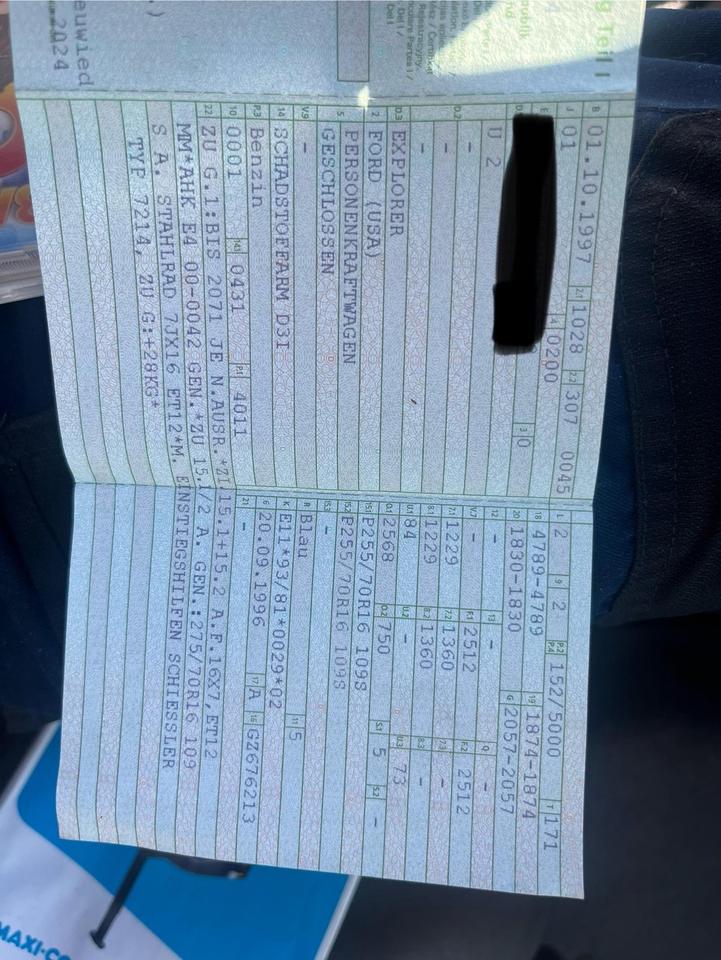 g Teil I
B 01.10.1997 2.1 1028 2.2 307 0045
J 01 4 0200
E 3 0
D.1
D.2 U 2
-
-
-
D.3 EXPLORER
2 FORD (USA)
5 PERSONENKRAFTWAGEN
GESCHLOSSEN
V.9 -
14 SCHADSTOFFARM D3I
P.3 Benzin
10 0001 14.1 0431 P.1 4011
L 2 9 2 P.2 P.4 152/5000 T 171
18 4789-4789 19 1874-1874
20 1830-1830 G 2057-2057
12 - 13 - Q -
V.7 - F.1 2512 F.2 2512
7.1 1229 7.2 1360 7.3 -
8.1 1229 8.2 1360 8.3 -
U.1 84 U.2 - U.3 73
O.1 2568 O.2 750 S.1 5 S.2 -
15.1 P255/70R16 109S
15.2 P255/70R16 109S
15.3 -
R Blau 11 5
K E11*93/81*0029*02
6 20.09.1996 17 A 16 GZ676213
21 -
22 ZU G.1:BIS 2071 JE N.AUSR.*ZU 15.1+15.2 A.F.16X7,ET12
MM*AHK E4 00-0042 GEN.*ZU 15.1/2 A. GEN.:275/70R16 109
S A. STAHLRAD 7JX16 ET12*M. EINSTIEGSHILFEN SCHIESSLER
TYP 7214, ZU G:+28KG*
.)
euwied
2024
MAXI-CO